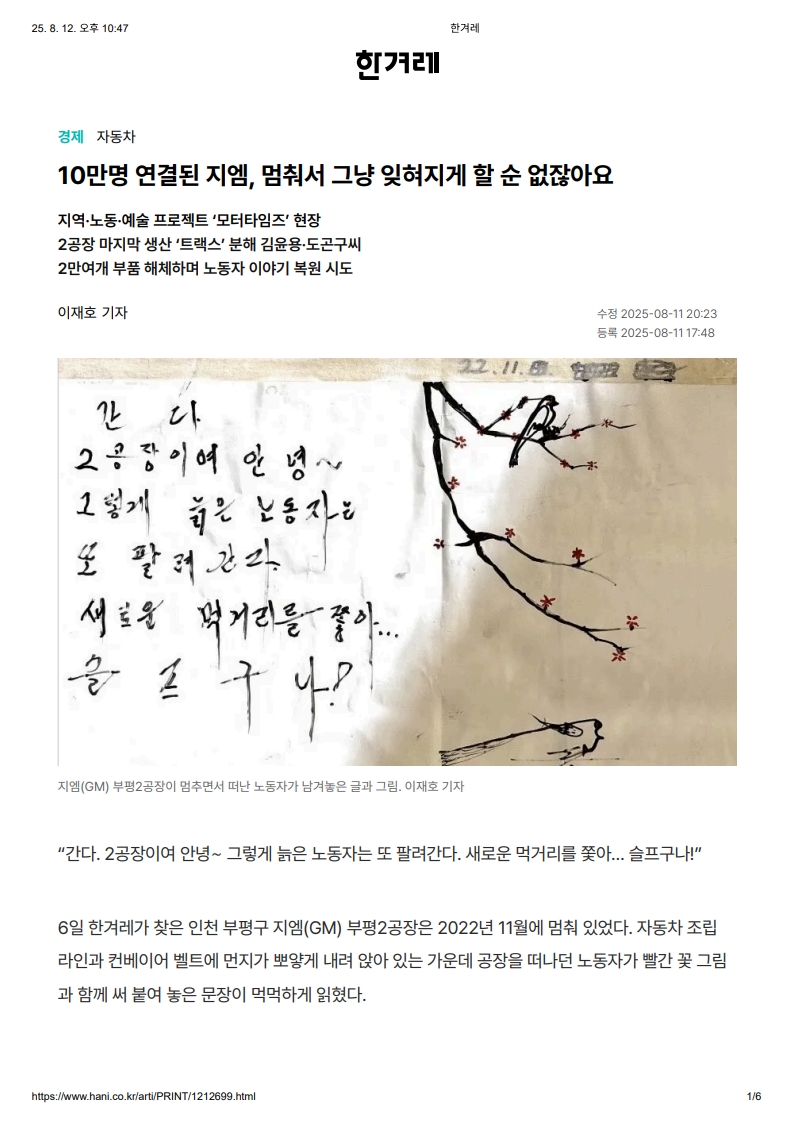 25. 8. 12. 오후 10:47
한겨레
한겨레
경제 자동차
10만명 연결된 지엠, 멈춰서 그냥 잊혀지게 할 순 없잖아요
지역·노동·예술 프로젝트 ‘모터타임즈’ 현장
2공장 마지막 생산 ‘트랙스’ 분해 김윤용·도곤구씨
2만여개 부품 해체하며 노동자 이야기 복원 시도
이재호 기자
수정 2025-08-11 20:23
등록 2025-08-11 17:48
22.11.
간 다
2공장이여 안녕~
그렇게 늙은 노동자는
또 팔려간다.
새로운 먹거리를 쫓아...
슬프구나!
지엠(GM) 부평2공장이 멈추면서 떠난 노동자가 남겨놓은 글과 그림. 이재호 기자
“간다. 2공장이여 안녕~ 그렇게 늙은 노동자는 또 팔려간다. 새로운 먹거리를 쫓아… 슬프구나!”
6일 한겨레가 찾은 인천 부평구 지엠(GM) 부평2공장은 2022년 11월에 멈춰 있었다. 자동차 조립
라인과 컨베이어 벨트에 먼지가 뽀얗게 내려 앉아 있는 가운데 공장을 떠나던 노동자가 빨간 꽃 그림
과 함께 써 붙여 놓은 문장이 먹먹하게 읽혔다.
https://www.hani.co.kr/arti/PRINT/1212699.html
1/6